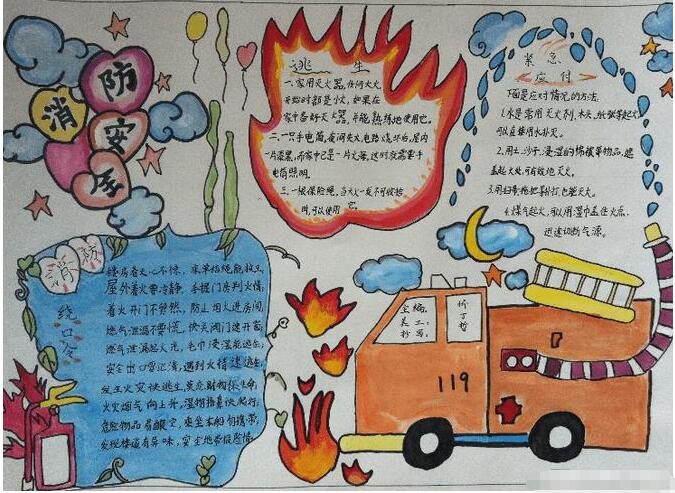 消防安全
逃生
一、家用灭火器,任何火灾
开始时都是小火,如果在
家中备好灭火器,并能熟练地使用它。
二、一只手电筒,夜间失火,电路烧坏后,屋内
一片漆黑,而家中已是一片火海,这时就需要手
电筒照明。
三、一根保险绳,当大火一发不可收拾
时,可以使用它。
紧急
应付
下面是应对情况的方法
1.水是常用灭火剂,木头,纸张等起火
可以直接用水扑灭。
2.用土、沙子、浸湿的棉被等物品,遮
盖起火处,可有效地灭火。
3.用扫帚拖把敲打也能灭火。
4.煤气起火,可以用湿巾盖住火点,
迅速切断气源。
消防
绕口令
楼房着火心不惊,床单结绳能救生,
屋外着火要冷静,手摸门房判火情,
着火开门不贸然,防止烟火进房间,
燃气泄漏不要慌,快关阀门速开窗,
燃气泄漏起火光,毛巾浸湿能逃生,
安全出口要记清,遇到火情速逃生,
发生火灾快逃生,莫恋财物保生命,
火灾烟气向上升,湿物捂鼻快爬行,
危险物品
发现楼道有异味,安全地带报险情。
主编:
美工:
抄写:
忻
丁
哲
119